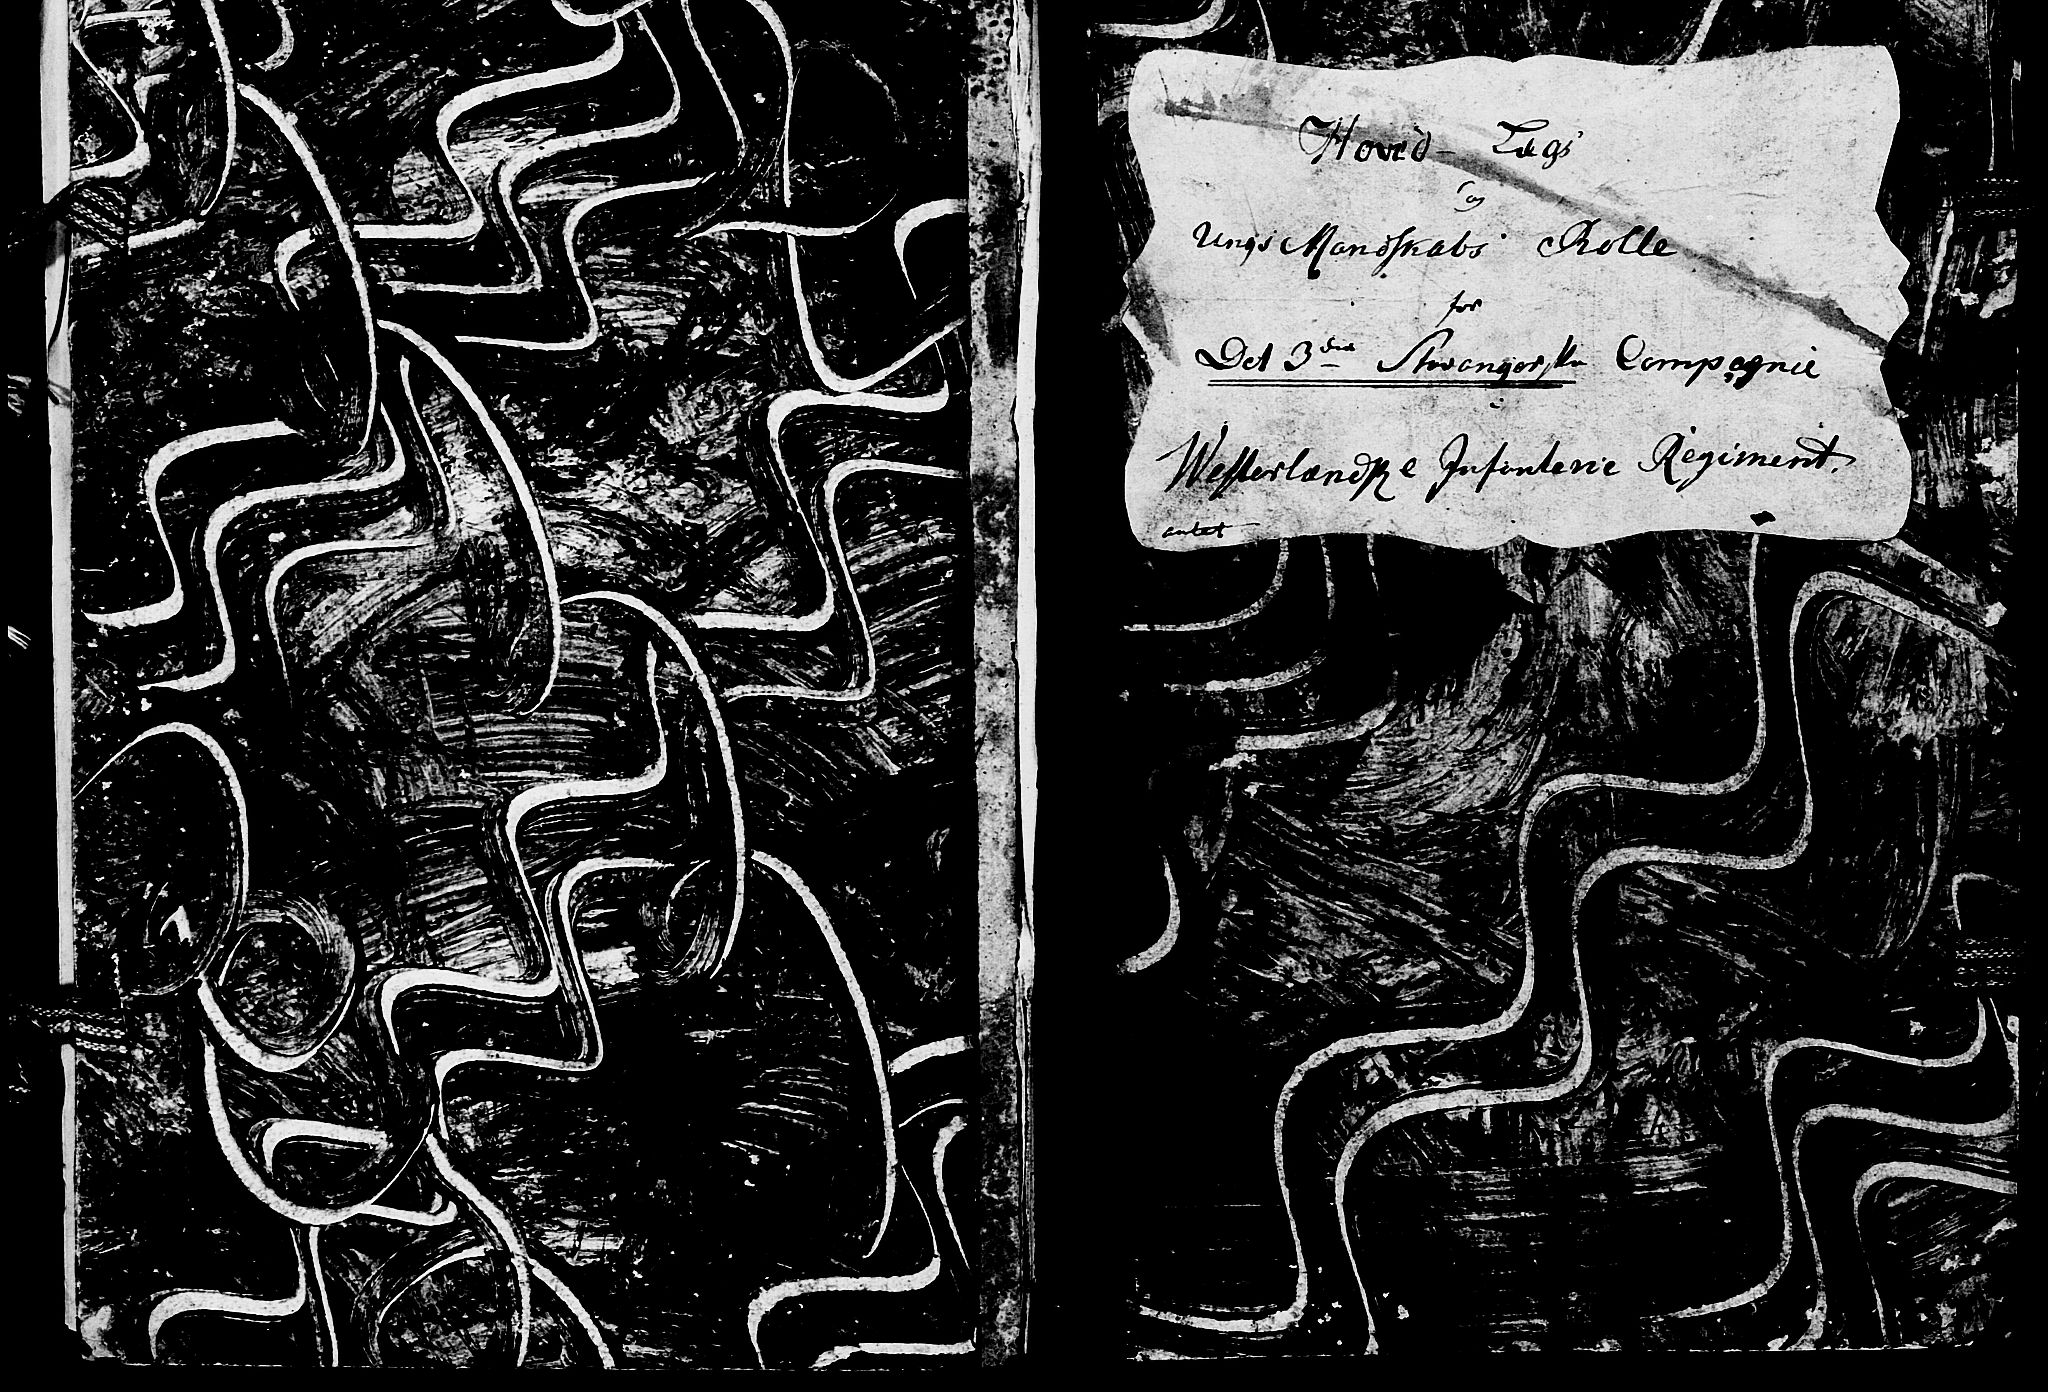 Hoved- Lægs
og
Ungt Mandskabs Rolle
for
Det 3die Stavangerske Compagnie
Westerlandske Infanterie Regiment.